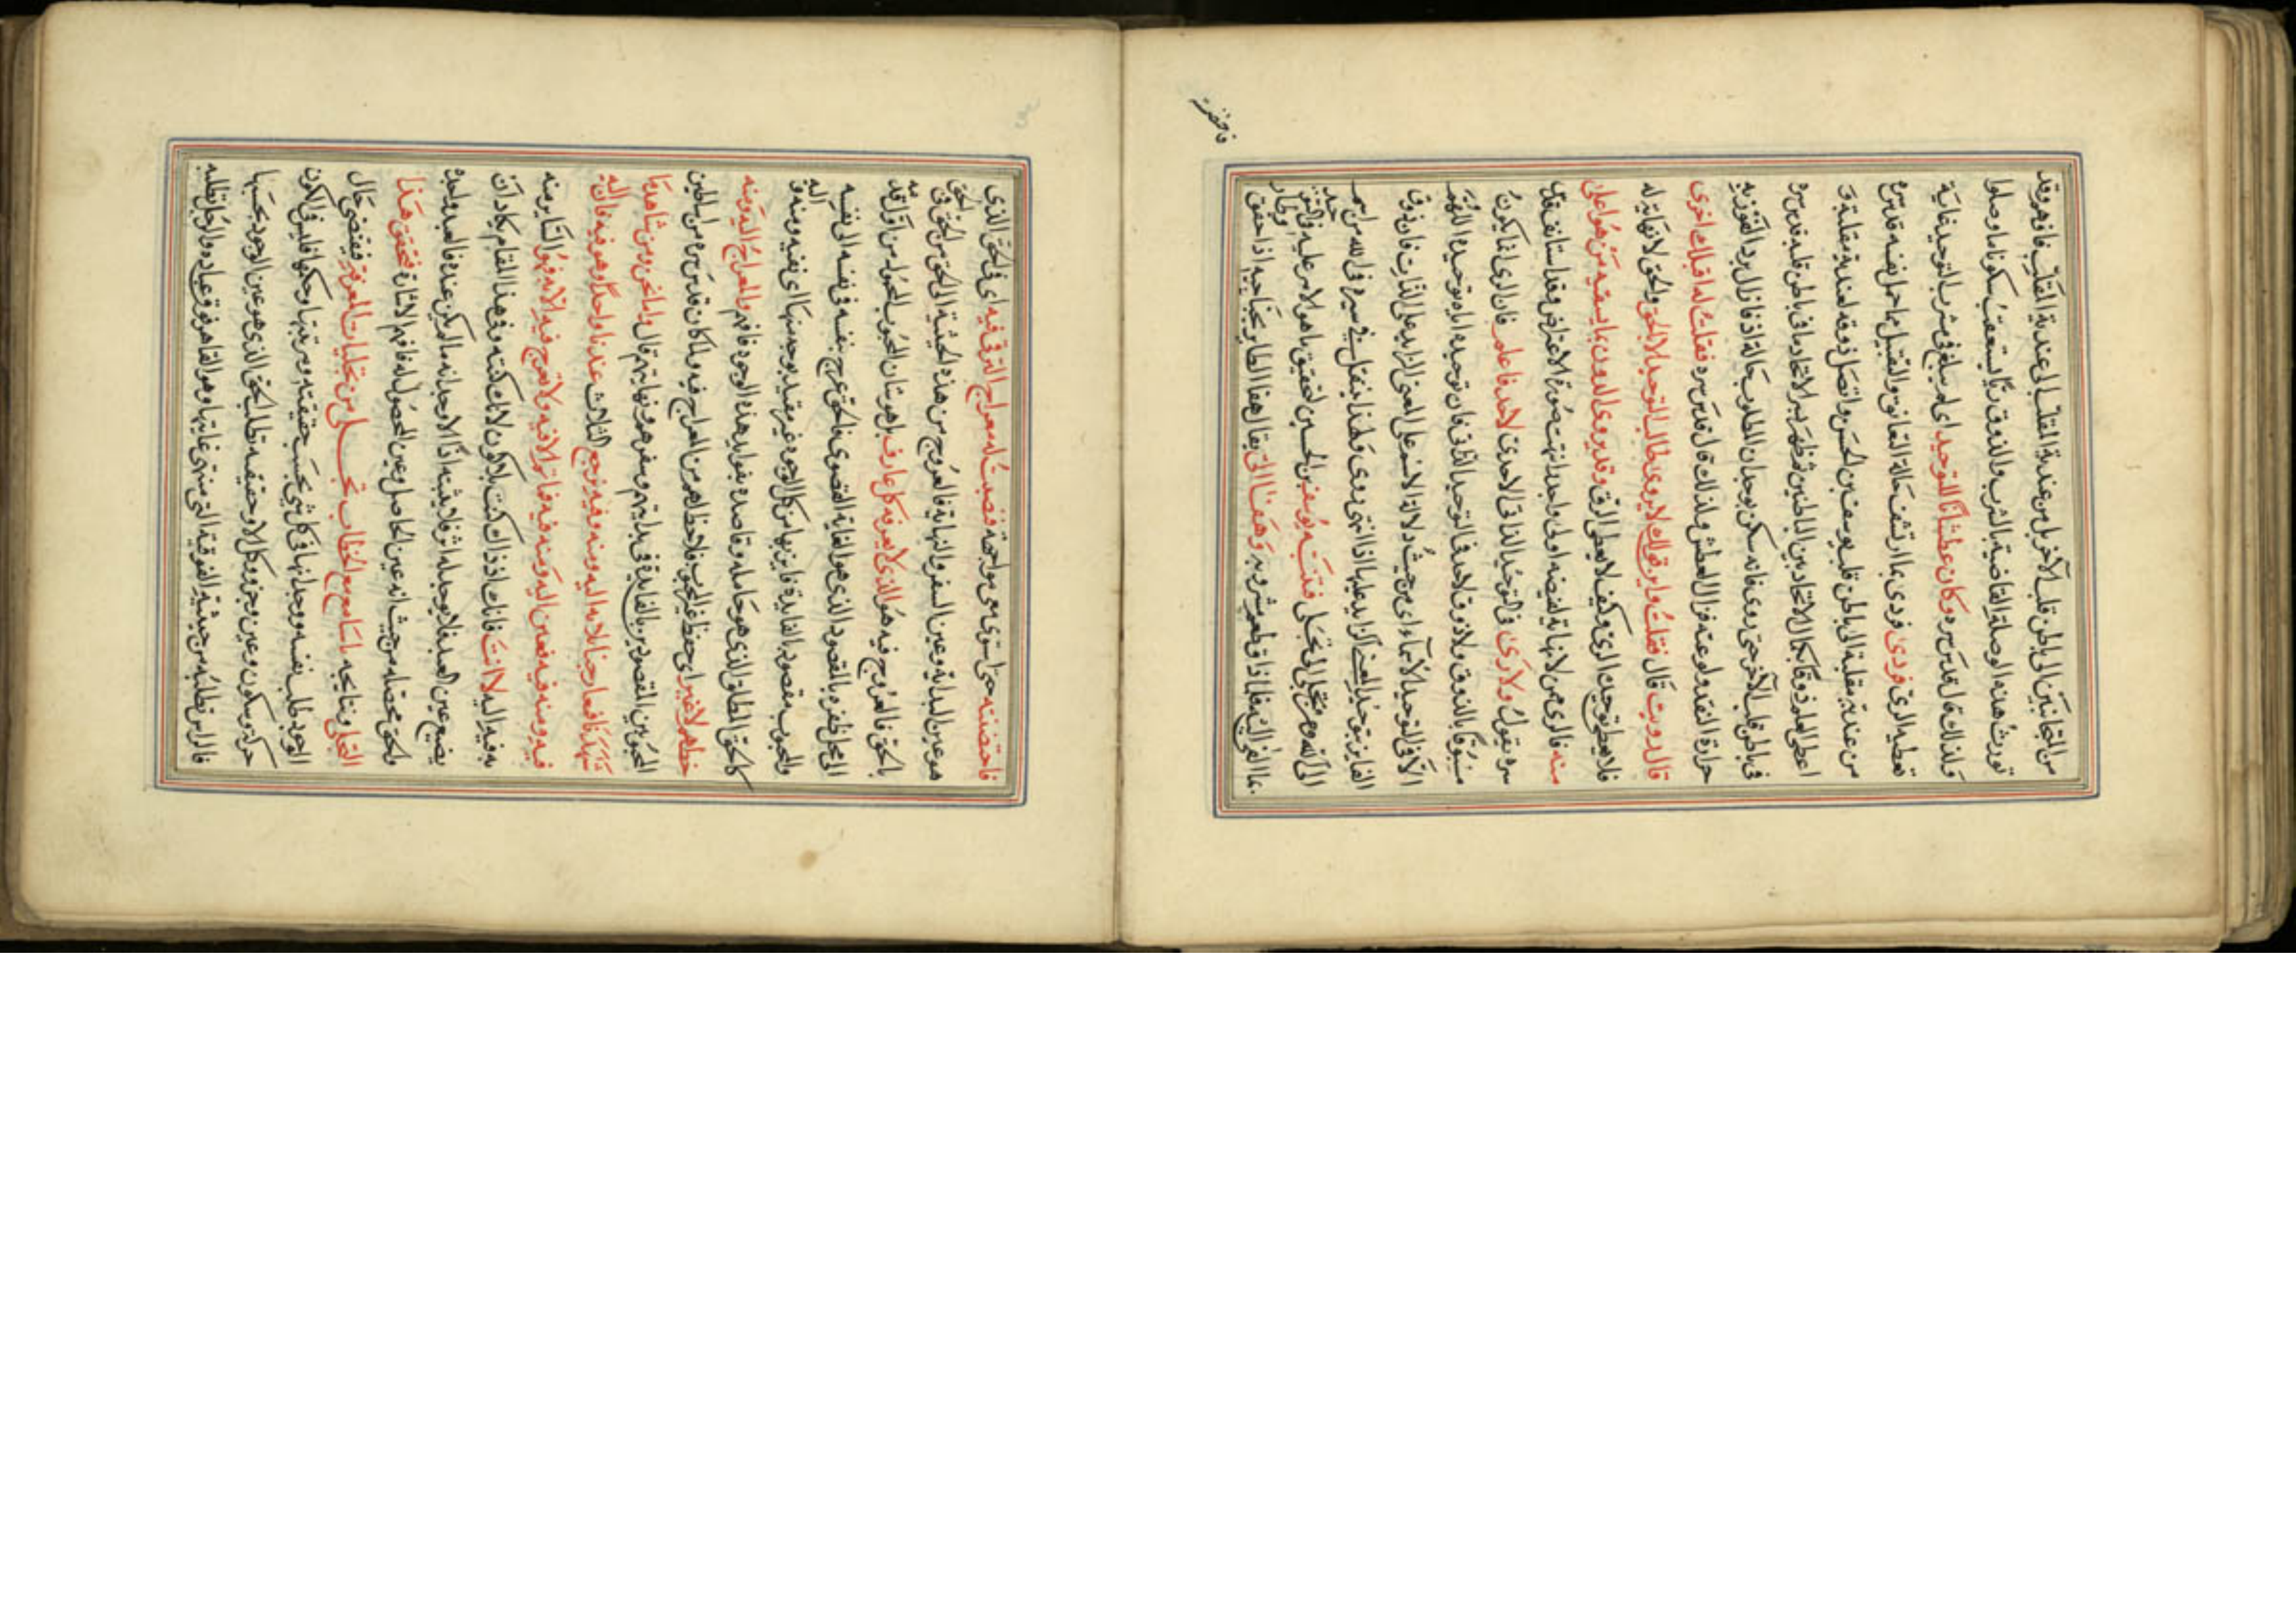 من المتجانبين الى باطن قلب الآخر بل من عندية التقلب الى عندية القلب فافهم وقد
تورث هذه الوصلة القاضية بالشرب والذوق ريّا يستعقب سكونا ما وصلوا
ولذلك قال قدس سره وكان عطشانا للتوحيد اى لم يبلغ فى شرب التوحيد غاية
تعطيه الرى فروى بما ارتشف حالة التعانق والتقبيل بما حمل نفسه قدس سره
من عندية مقلبة الى باطن قلب يوسف بن الحسين واتصل ذوقه لعندية مقلبة ق
اعطى العلم ذوقا بكمال الاتحاد بين الباطنين فظهر سر الاتحاد ما فى باطن قلبه قدس سره
فى باطن قلب الآخر حتى روى فانه سكن بوجدان المطلوب حالة اذ فازال برد الفوز به
حرارة الفقد ولوعته فزال العطش ولذلك قال قدس سره فقلت له اقبلك اخرى
قال رويت قال فقلت له واين قولك لا يروى طالب التوحيد الا بالحق والحق لا نهاية له
فلا يعطى توحيده الرى وكيف لا يعطى الرى وقد يروى الدون بما يسقيه من هو اعلى
منه فالرى ممن لا نهاية لفيضه اولى واجدر انتهت صورة الاعتراض وقد استانف قدس
سره بقوله ولا رى فى التوحيد الذاتى لاحد فاعلم فان الرى انما يكون
مسبوقا بالذوق ولا ذوق لاحد فى التوحيد الذاتى فان توحيده اياه توحيده اللهم
الا فى التوحيد الاسماء اى من حيث دلالة الاسم على المعنى الزايد على الذات فان ذوق
الفايز بتوحيد العلم الزايد عليها اذا انتهى روى ولهذا ينتقل فى سيره فى الله من اسم
الى آخر ومن تجلى الى تجلى فتنبه يوسف بن الحسين لتحقيق ما هو الامر عليه فى التوحيد
عما القى اليه فلما ذاق طعم شربه وهفا الى يقال هفا الطاير بجناحيه اذا خفق وطار
فاحتضنته
فاحتضنته حتى استوى معى مواجهة فنصبت له معراج الترقى فيه اى فى الحق الذى
هو عين البداية وعين السفر والنهاية فالعروج من هذه الحيثية الى الحق من الحق فى الحق
بالحق فالعروج فيه هو الذى لا يعرفه كل عارف بل هو شان المحبوب المحمول من اول قدمه
الى محل ظفره بالمقصود الذى هو الغاية القصوى فالحق عرج بنفسه فى نفسه الى نفسه
والمحبوب مقصود بالفايدة فاين نهايات من كل الوجوه غير مقيد بوجه منها اى نفسه ومنه وفيه اليه
كالحق المطلق الذى هو حامله وقاصده بفوايد هذه الوجوه فافهم والمعراج اليه ومنه
خطاهم لا غير اى حفظ غير المحبوب فلا حظ لهم من المعراج فيه ولما كان قدس سره من سلاطين
المحبوبين المقصودين بالفايدة فى بدايتهم وسفرهم ونهايتهم قال واما نحن ومن شاهد ما
شهدنا فمعارجنا ثلاثة اليه ومنه وفيه ترجع الثلاث عندنا واحدا وهو فيه فان اليه
فيه ومنه فيه فعين اليه ومنه فيه فما ثم الا فيه ولا تعرج فيه الا به فهو السّاير منه
به فيه اليه لا انت فانك اذ ذاك كنت بلا كون لانك كنته وفى هذا المقام يكاد ان
يضيع عين العبد فلا يوجد له اثر فلا يثبته اذًا الا وجدانه ما لم يكن عنده فالعبد واجد
والحق محصّله من حيث انه عين الحاصل وعين المحصول له فافهم الاشارة فتحقق هذا
التجلى ونتايجه يا سامع الخطاب تجلى من تجليات المعرفة فمقتضى حال
الوجود طلب نفسه ووجدانها فى كل شى بحسب حقيقته ومرتبتها وحكمها فليس فى الكون
حركة وسكون وعين وجزؤ وكل الا وحقيقته تطلب الحق الذى هو عين الوجود بحسبها
فالراس تطلبه من حيثية الفوقية التى منتهى غايتها وهو القاهر فوق عباده والرجل تطلبه